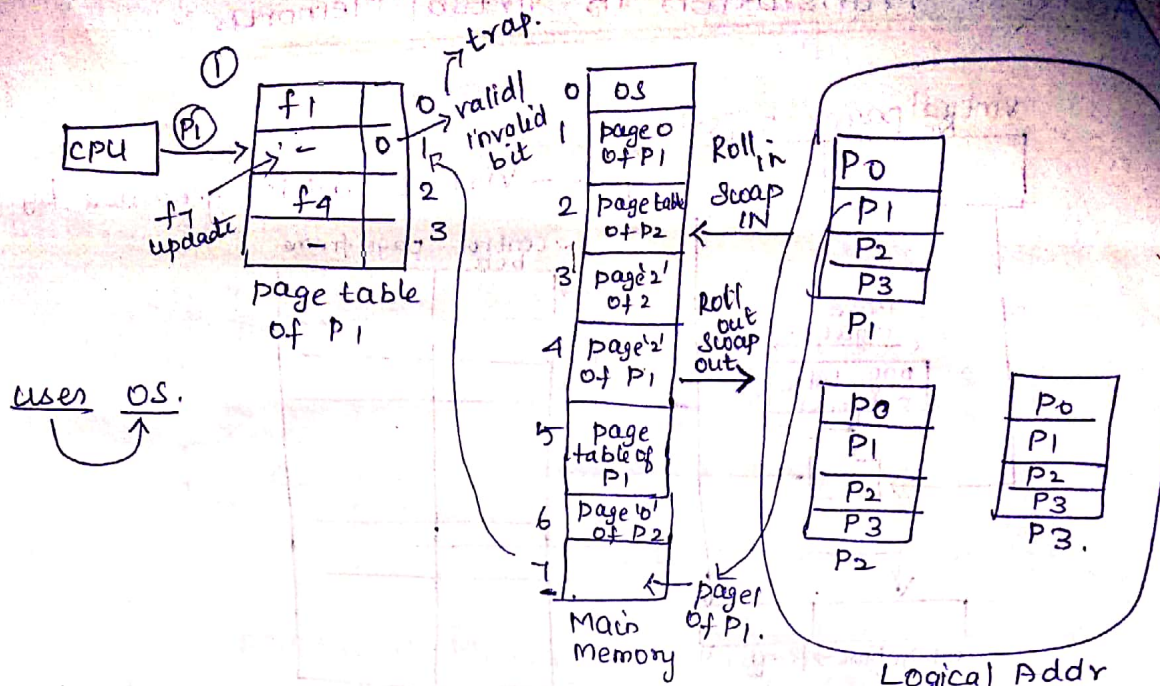 ①
trap.
CPU
P1
f1
-
0
f4
-
0
1
2
3
valid/
invalid
bit
f7
update
page table
of P1
user OS.
0
OS
1
page 0
of P1
2
page table
of P2
3
page '2'
of 2
4
page '2'
of P1
5
page
table of
P1
6
page '0'
of P2
7
Main
memory
Roll in
Swap
IN
Roll
out
Swap
out
page 1
of P1.
P0
P1
P2
P3
P1
P0
P1
P2
P3
P2
P0
P1
P2
P3
P3.
Logical Addr